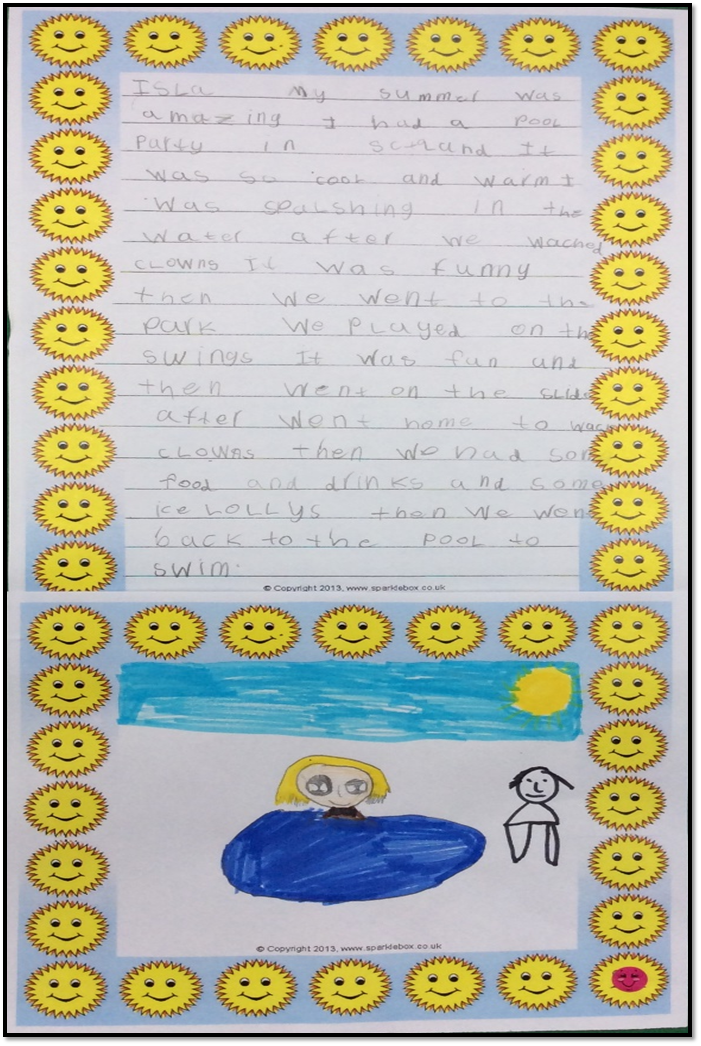 ISLa My summer was
amazing I had a POOL
Party in Scotland It
was so cool and warm I
was spalshing in the
water after we wached
CLOWNS It was funny
then we went to the
Park we PLayed on th
swings It was fun and
then went on the SLide
after went home to wach
CLOWNS then we had som
food and drinks and some
ice LOLLYS then we wen
back to the POOL to
swim.
© Copyright 2013, www.sparklebox.co.uk
© Copyright 2013, www.sparklebox.co.uk